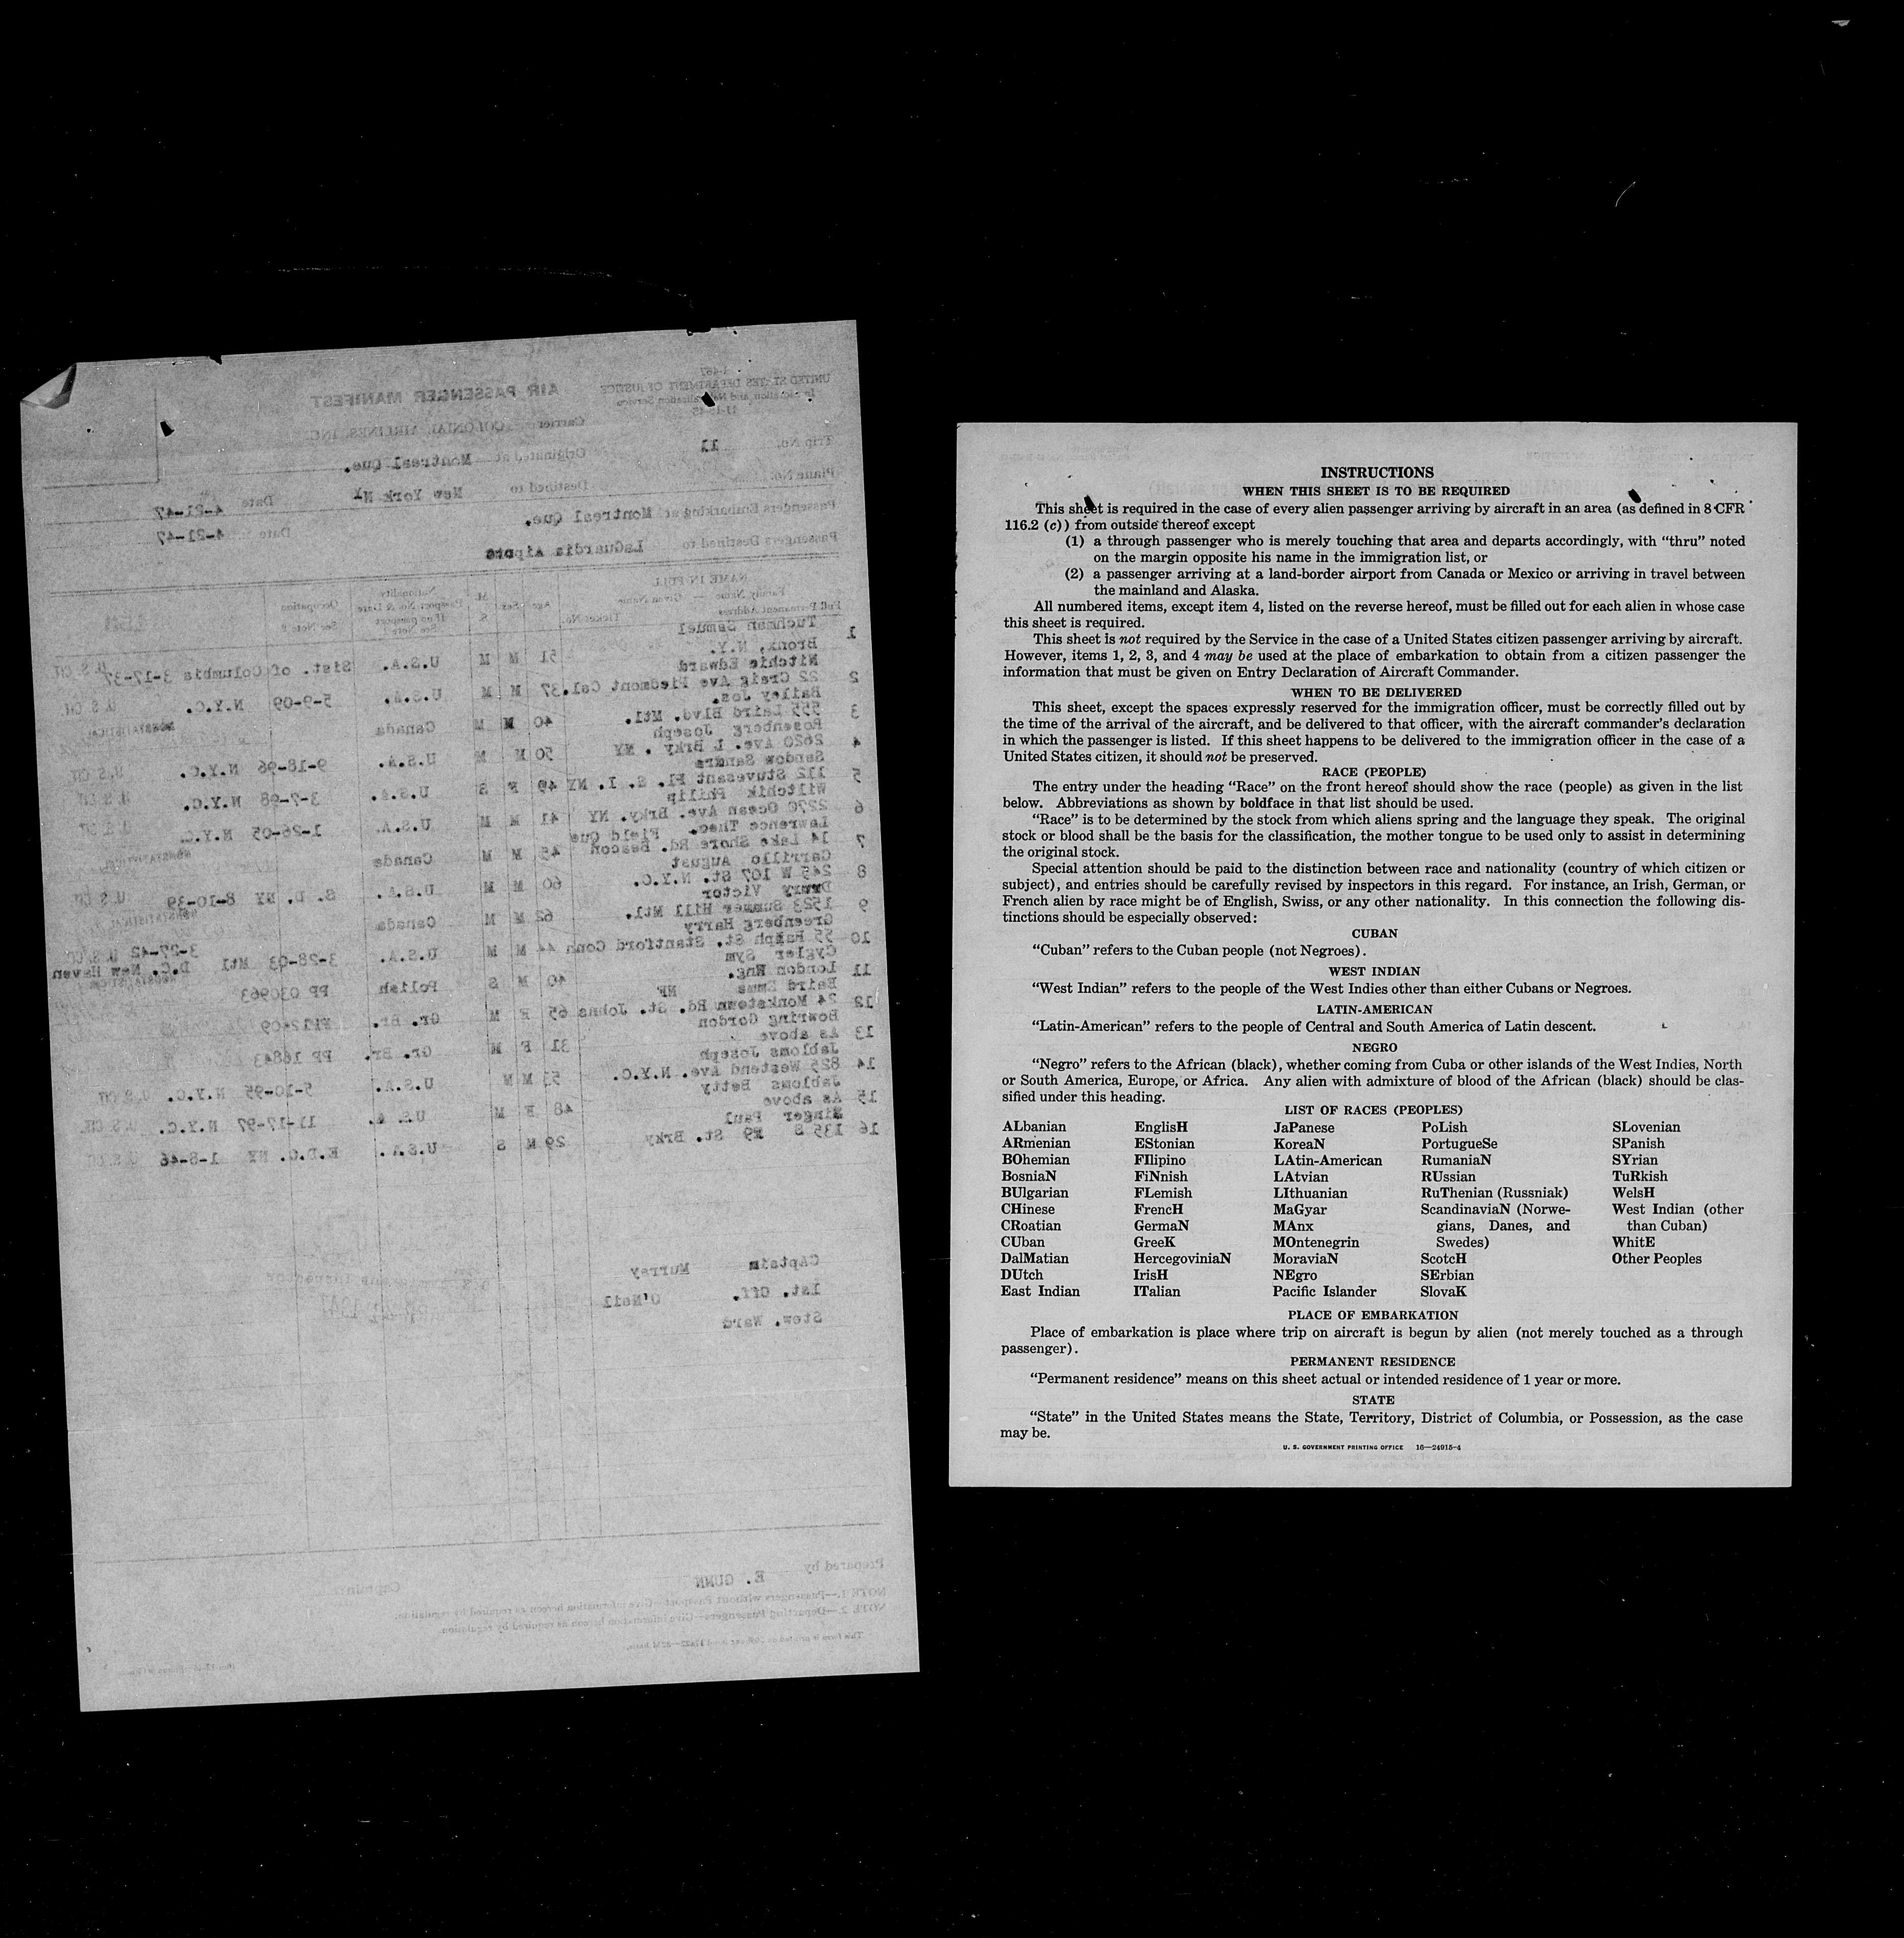 I-467
UNITED STATES DEPARTMENT OF JUSTICE
Immigration and Naturalization Service
11-15-45
AIR PASSENGER MANIFEST
Carrier COLONIAL AIRLINES, INC.
Trip No. 11 Originated at Montreal Que.
Plane No. Destined to New York NY Date 4-21-47
Passengers Embarking at Montreal Que. Date 4-21-47
Passengers Destined to LaGuardia Aipots
NAME IN FULL
Family Name — Given Name
Full Permanent Address Ticket No.
Age Sex M S
Nationality
Passport No. & Date
If no passport
See Note
Occupation
See Note 2
1 Tuchman Samuel
Bronx, N.Y. 51 M M U.S.A. Sist. of Columbia 3-17-37 U.S. CIT
2 Nitchie Edward
22 Craig Ave Piedmont Cal. 37 M M U.S.A. 5-9-09 N.Y.C. U.S. CIT
3 Bailey Jos.
555 Laird Blvd. Mtl. 40 M M Canada NONSTATISTICAL
4 Rosenberg Joseph
2620 Ave. L Brky . NY 50 M M U.S.A. 9-18-96 N.Y.C. U.S. CIT
5 Sandow Sandra
112 Stuvesant Fl. S. I. NY 49 F S U.S.A. 3-7-98 N.Y.C. U.S. CIT
6 Wiltchik Philip
2270 Ocean Ave. Brky. NY 41 M M U.S.A. 1-26-05 N.Y.C. U.S. CIT
7 Lawrence Theo. Field Que
14 Lake Shore Rd. Beacon 45 M M Canada NONSTATISTICAL
8 Carrillo August
245 W 107 St. N.Y.C. 60 M M U.S.A. S. D. NY 8-10-39 U.S. CIT
9 Drury Victor
1523 Summer Hill Mtl. 62 M M Canada NONSTATISTICAL
10 Greenberg Harry
55 Ralph St. Stantford Conn 44 M M U.S.A. 3-28-03 Mtl 3-27-42 U.S. CIT
D.C. New Haven
11 Cygler Sym
London Eng. 40 M S Polish PP 030963 NONSTATISTICAL
12 Baird Emma NF
24 Monkstown Rd. St. Johns 65 F M Gr. Br.
13 Bowring Gordon
As above 31 F M Gr. Br. PP 16843
14 Jabloms Joseph
825 Westend Ave. N.Y.C. 53 M M U.S.A. 5-10-95 N.Y.C. U.S. CIT
15 Jabloms Betty
As above 48 F M U.S. A. 11-17-97 N.Y.C. U.S. CIT.
16 Singer Paul
135 S E9 St. Brky 29 M S U.S.A. E.D.C. NY 1-8-46 U.S. CIT
Captain Murray
1st. Off. O'Neil
Stew. Ward
Prepared by E. GUNN Captain
NOTE 1.—Passengers without Passport—Give information hereon as required by regulation.
NOTE 2.—Departing Passengers—Give information hereon as required by regulation.
INSTRUCTIONS
WHEN THIS SHEET IS TO BE REQUIRED
This sheet is required in the case of every alien passenger arriving by aircraft in an area (as defined in 8 CFR
116.2 (c)) from outside thereof except
(1) a through passenger who is merely touching that area and departs accordingly, with “thru” noted
on the margin opposite his name in the immigration list, or
(2) a passenger arriving at a land-border airport from Canada or Mexico or arriving in travel between
the mainland and Alaska.
All numbered items, except item 4, listed on the reverse hereof, must be filled out for each alien in whose case
this sheet is required.
This sheet is not required by the Service in the case of a United States citizen passenger arriving by aircraft.
However, items 1, 2, 3, and 4 may be used at the place of embarkation to obtain from a citizen passenger the
information that must be given on Entry Declaration of Aircraft Commander.
WHEN TO BE DELIVERED
This sheet, except the spaces expressly reserved for the immigration officer, must be correctly filled out by
the time of the arrival of the aircraft, and be delivered to that officer, with the aircraft commander’s declaration
in which the passenger is listed. If this sheet happens to be delivered to the immigration officer in the case of a
United States citizen, it should not be preserved.
RACE (PEOPLE)
The entry under the heading “Race” on the front hereof should show the race (people) as given in the list
below. Abbreviations as shown by boldface in that list should be used.
“Race” is to be determined by the stock from which aliens spring and the language they speak. The original
stock or blood shall be the basis for the classification, the mother tongue to be used only to assist in determining
the original stock.
Special attention should be paid to the distinction between race and nationality (country of which citizen or
subject), and entries should be carefully revised by inspectors in this regard. For instance, an Irish, German, or
French alien by race might be of English, Swiss, or any other nationality. In this connection the following dis-
tinctions should be especially observed:
CUBAN
“Cuban” refers to the Cuban people (not Negroes).
WEST INDIAN
“West Indian” refers to the people of the West Indies other than either Cubans or Negroes.
LATIN-AMERICAN
“Latin-American” refers to the people of Central and South America of Latin descent.
NEGRO
“Negro” refers to the African (black), whether coming from Cuba or other islands of the West Indies, North
or South America, Europe, or Africa. Any alien with admixture of blood of the African (black) should be clas-
sified under this heading.
LIST OF RACES (PEOPLES)
ALbanian EnglisH JaPanese PoLish SLovenian
ARmenian EStonian KoreaN PortugueSe SPanish
BOhemian FIlipino LAtin-American RumaniaN SYrian
BosniaN FiNnish LAtvian RUssian TuRkish
BUlgarian FLemish LIthuanian RuThenian (Russniak) WelsH
CHinese FrencH MaGyar ScandinaviaN (Norwe- West Indian (other
CRoatian GermaN MAnx gians, Danes, and than Cuban)
CUban GreeK MOntenegrin Swedes) WhitE
DalMatian HercegoviniaN MoraviaN ScotcH Other Peoples
DUtch IrisH NEgro SErbian
East Indian ITalian Pacific Islander SlovaK
PLACE OF EMBARKATION
Place of embarkation is place where trip on aircraft is begun by alien (not merely touched as a through
passenger).
PERMANENT RESIDENCE
“Permanent residence” means on this sheet actual or intended residence of 1 year or more.
STATE
“State” in the United States means the State, Territory, District of Columbia, or Possession, as the case
may be.
U. S. GOVERNMENT PRINTING OFFICE 16—24915-4